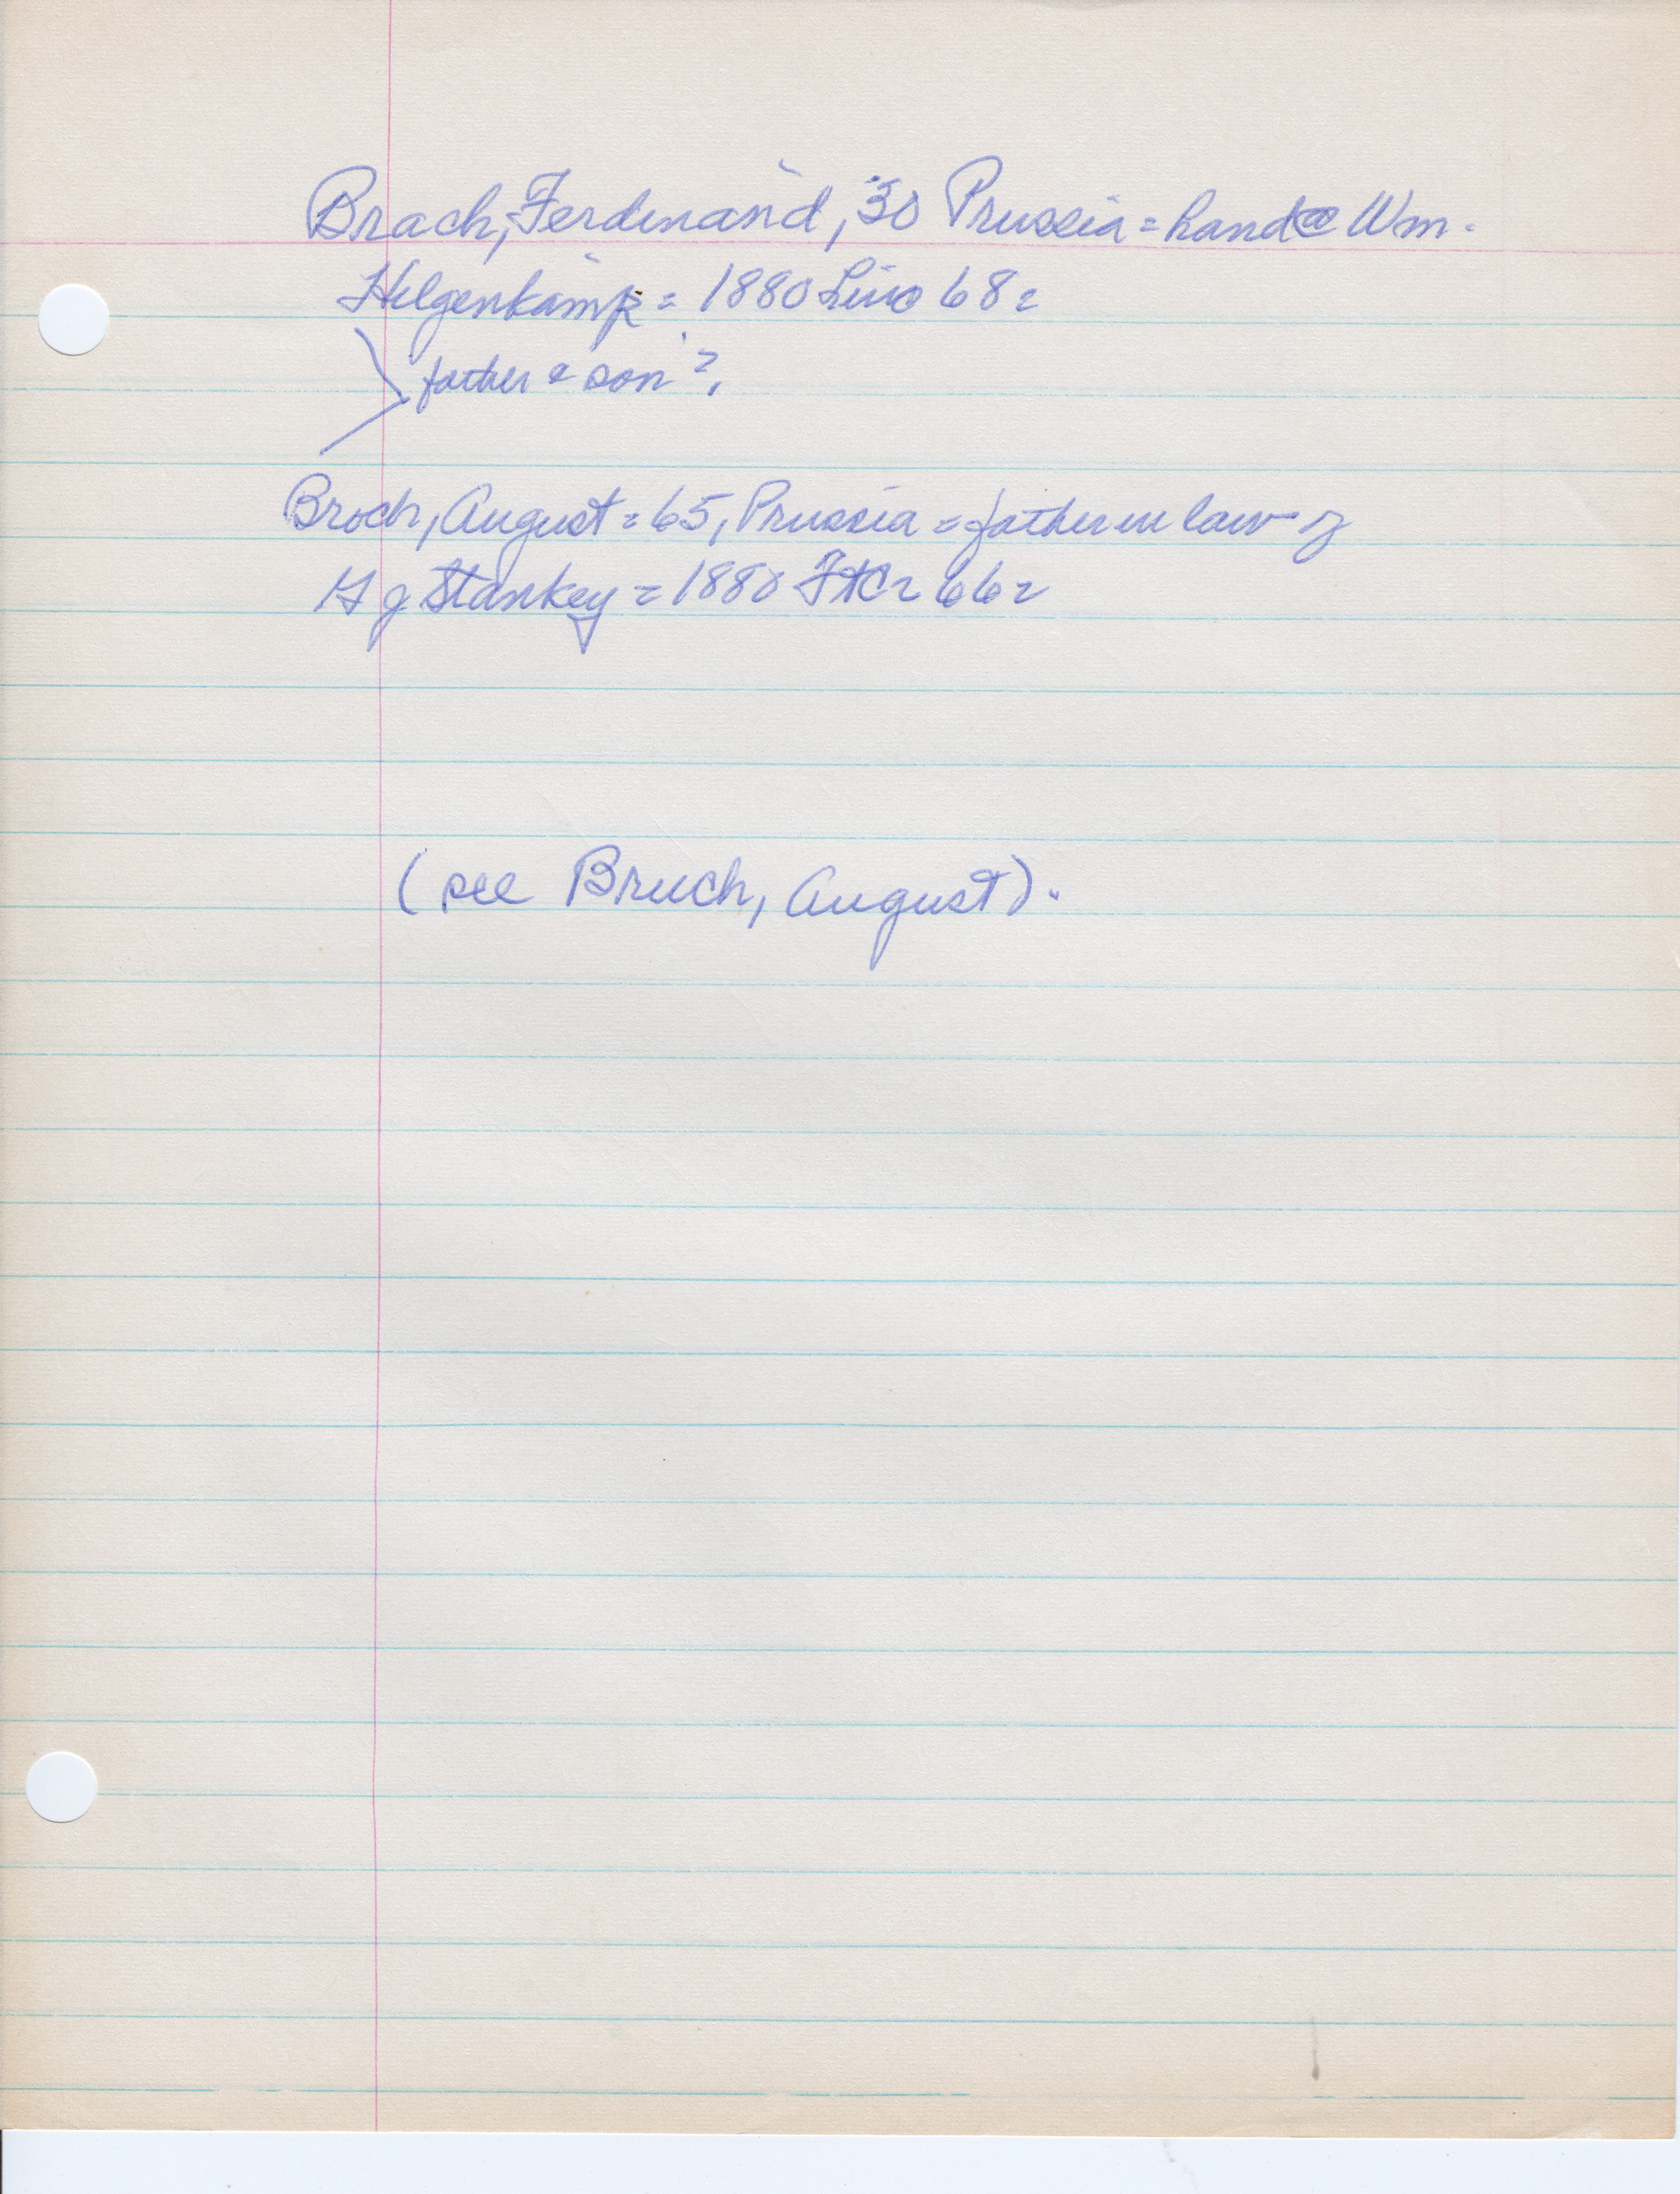 Brach, Ferdinand, 30 Prussia = hand @ Wm.
Hilgenkamp = 1880 Linc 68=
father & son?
Broch, August = 65, Prussia = father in law of
Hy Stankey = 1880 FtC = 66=
(see Bruch, August).